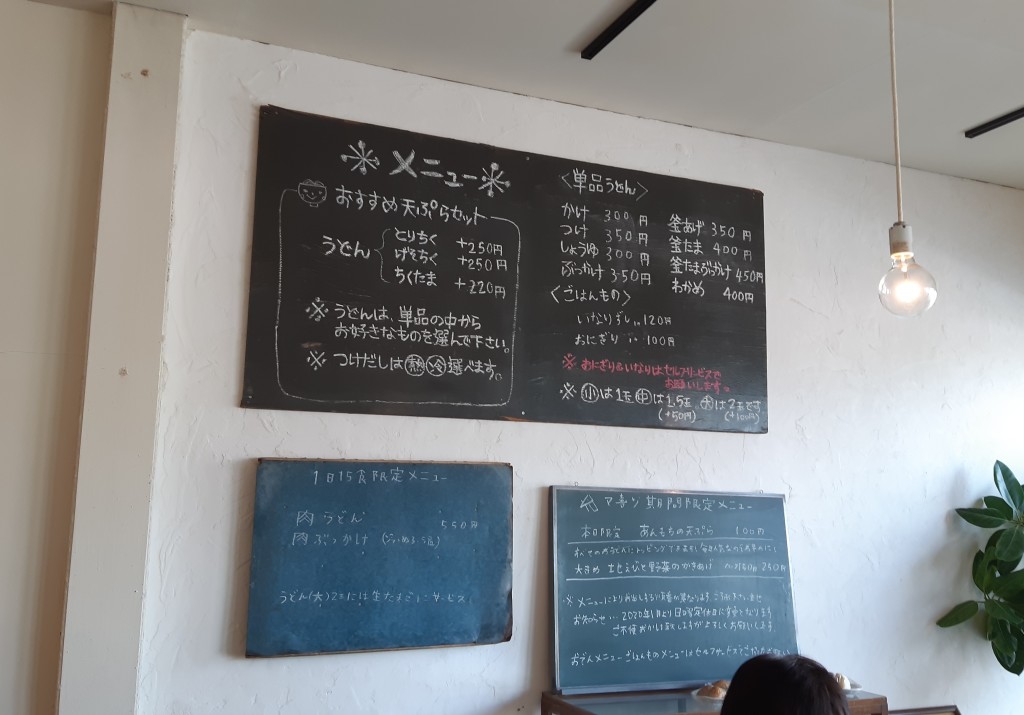 メニュー
おすすめ天ぷらセット
うどん
とりちく +250円
げそちく +250円
ちくたま +220円
※うどんは、単品の中から
お好きなものを選んで下さい。
※つけだしは熱冷選べます。
<単品うどん>
かけ 300円
つけ 350円
しょうゆ 300円
ぶっかけ 350円
釜あげ 350円
釜たま 400円
釜たまぶっかけ 450円
わかめ 400円
<ごはんもの>
いなりずし 120円
おにぎり 100円
※おにぎり&いなりはセルフサービスで
お願いします。
※小は1玉 中は1.5玉 大は2玉です
(+50円) (+100円)
1日15食限定メニュー
肉うどん 550円
肉ぶっかけ
うどん(大)
サービス
期間限定メニュー
本日限定 あんもちの天ぷら 100円
野菜のかきあげ
※メニューにより
お知らせ… 2020年1月より
おでんメニュー ごはんものメニューはセルフサービスで